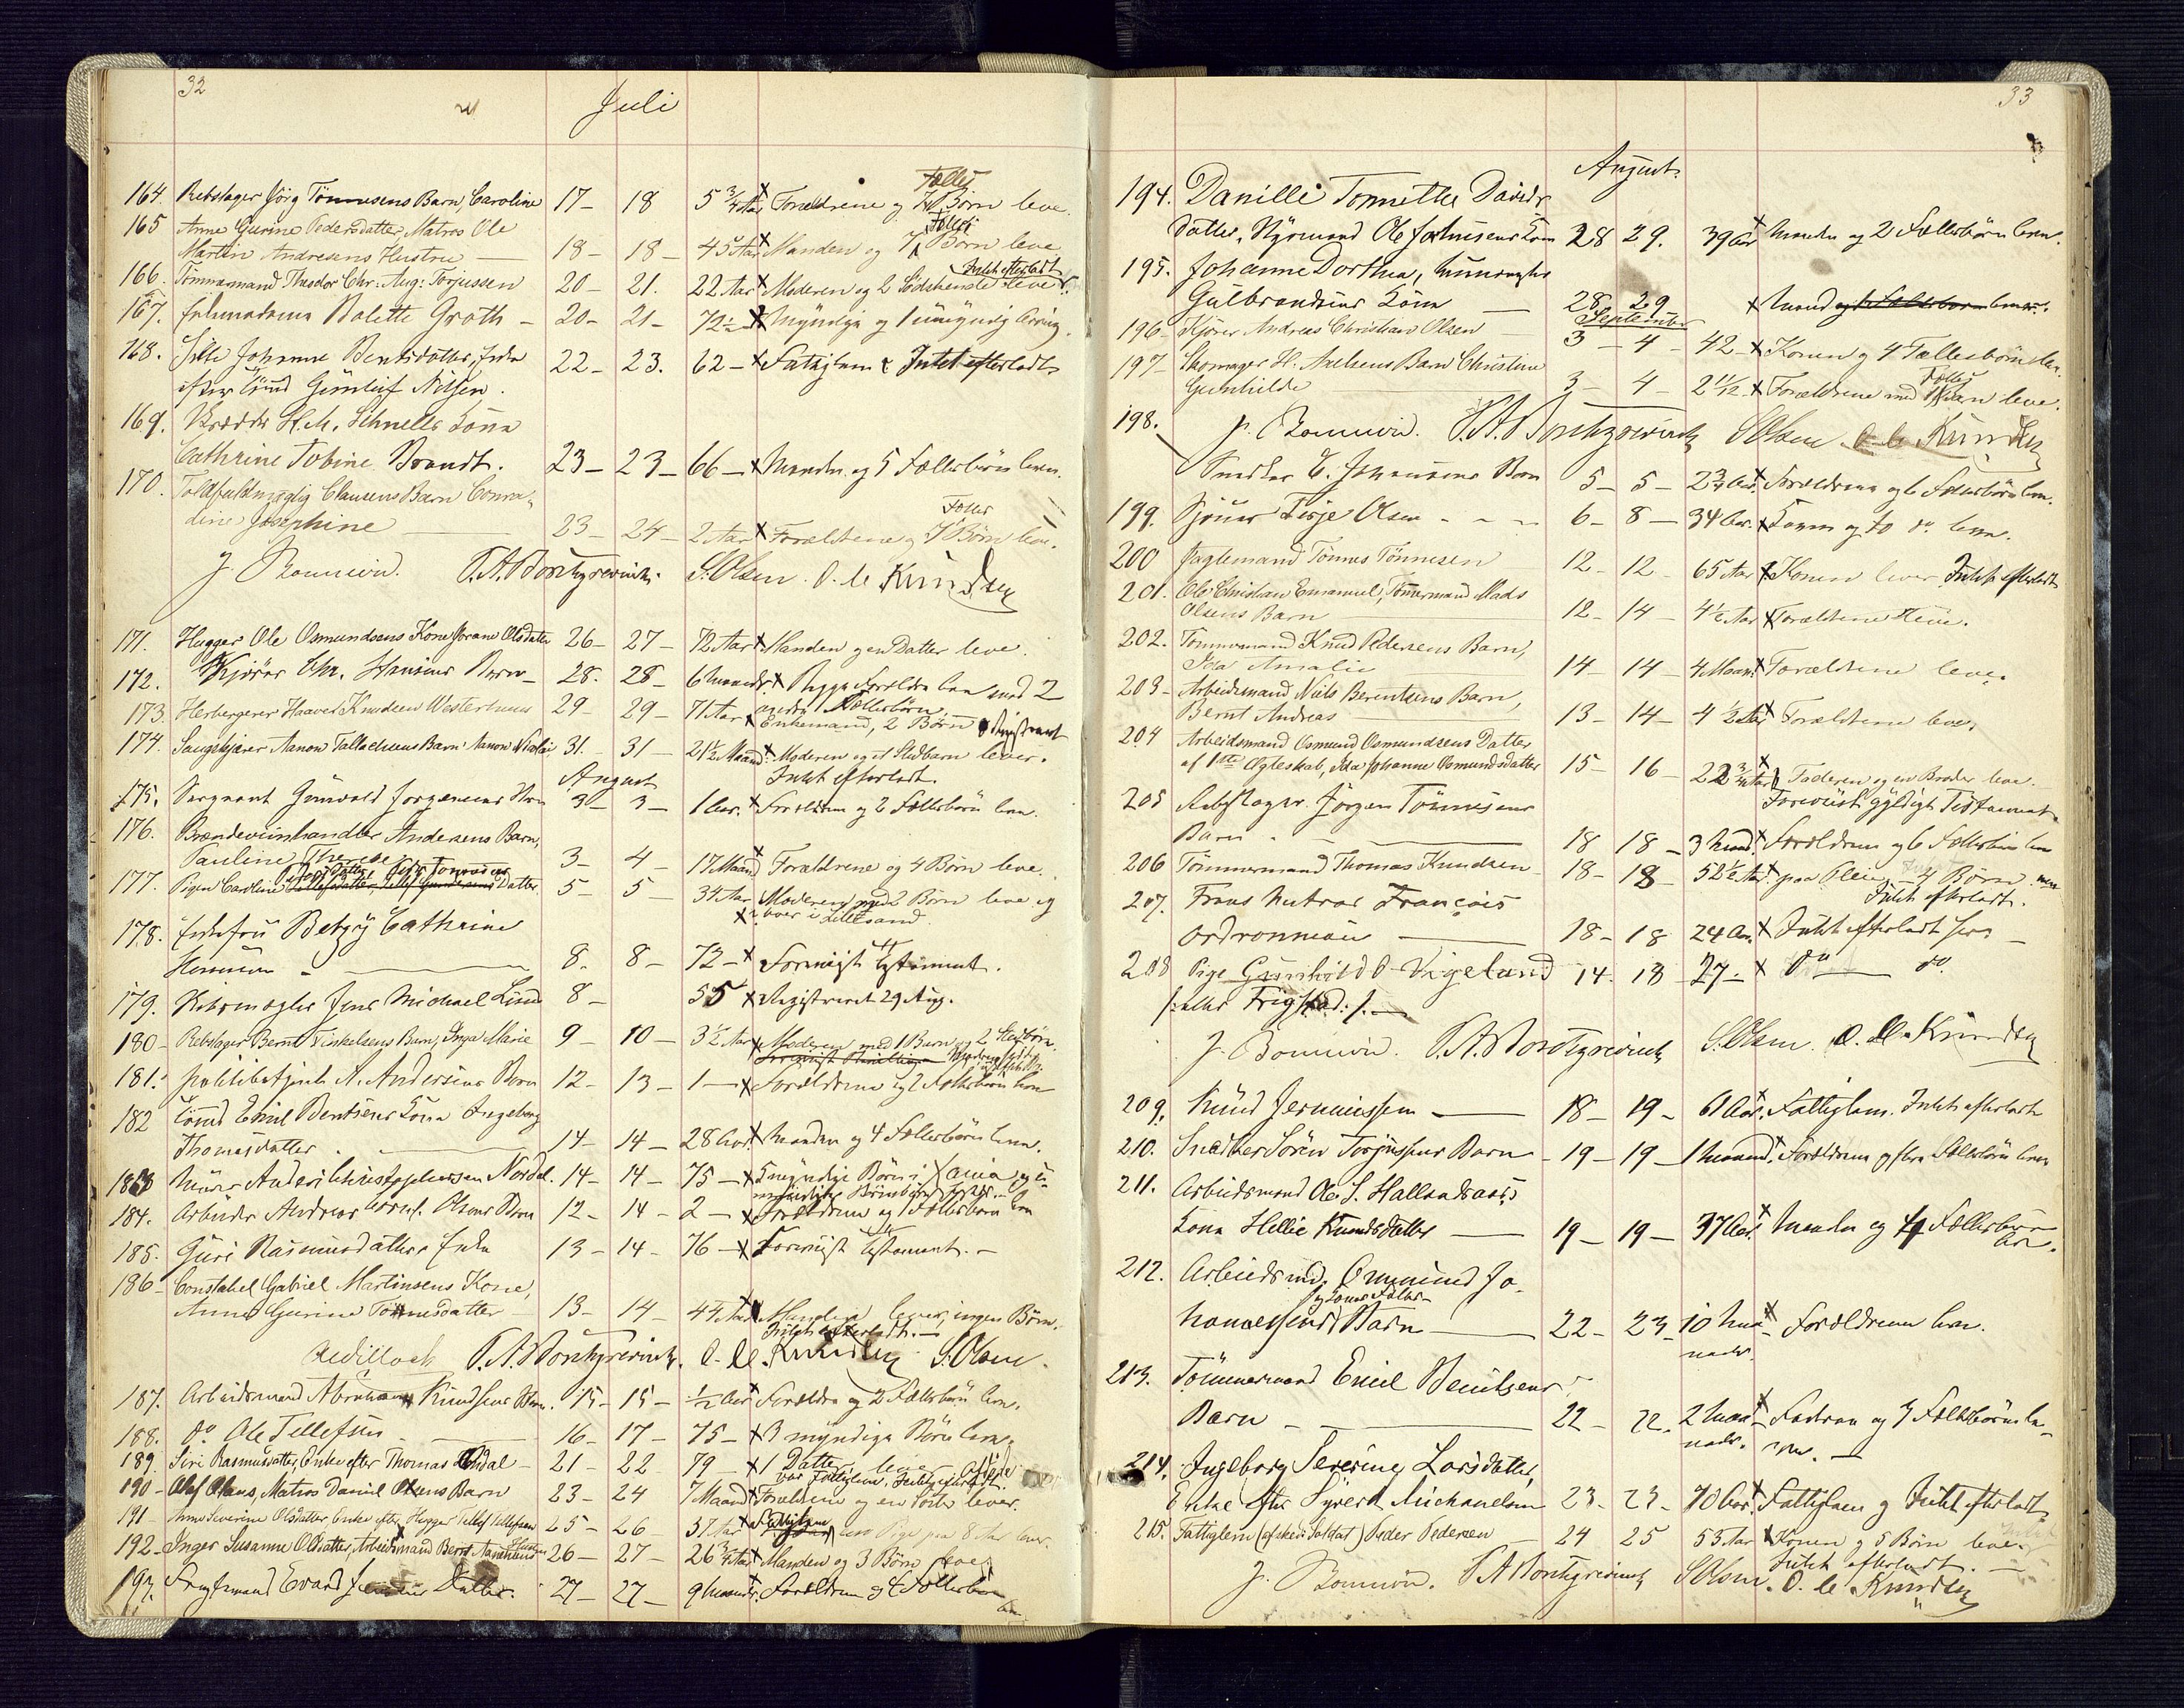 32
Juli
164. Rebslager Jörg Tönnesens Barn, Caroline 17- 18 5 3/4 Aar x Forældrene og Fælles Börn leve.
165 Anne Gurine Pedersdatter, Matros Ole
Martin Andresens Hustru - 18- 18- 45 Aar x Manden og 7 Fælles Börn leve
166. Tömmermand Theodor Chr: Aug: Torjussen 20- 21. 22 Aar x Moderen og 2 Södskende lever. Intet efterladt
167. Enkemadame Bolette Groth - 20- 21- 72½ x Myndige og 1 umyndig Arving.
168. Sille Johanne Bentsdatter, Enke 22- 23. 62- x Fattiglem & Intet efterladt
efter Gunleif Nilsen.
169. H. M. Schnells Kone
Cathrine Tobine Brandt. 23- 23- 66- x Manden og 5 Fællesbörn lever.
170. Toldfuldmægtig Clausens Barn Conra-
dine Josephine 23- 24- 2 Aar x Forældrene og 7 Fælles Börn leve.
J. Bomwin. T. A. Bontgrevink. S. Olsen. O. M. Knudsen
171. Hugger Ole Osmundsens Kone Jorann Olsdatter 26- 27- 72 Aar x Manden og en Datter leve.
172. Kjörer Chr. Hansens Barn - 28. 28- 6 Maaneder x Begge Forældre leve med 2
andre Fællesbörn.
173. Herbergerer Haaver Knudsen Westerhuus 29- 29- 71 Aar x Enkemand, 2 Börn
174. Saugskjærer Aanon Tallachsens Barn Aanon Nicolai 31. 31- 21½ Maaned. Moderen og et Stedbarn lever.
Intet efterladt.
August
175. Sergeant Grunvald Jörgensens Barn 3- 3- 1 Aar. x Forældrene og 2 Fællesbörn leve.
176. Brændeviinshandler Andersens Barn,
Pauline Therese 3- 4- 17 Maaned x Forældrene og 4 Börn leve.
177. Pigen Caroline Datter 5- 5- 34 Aar Moderen med 2 Börn leve og
x boer i Lillesand
178. Enkefru Betzy Cathrine
8. 8- 72- x Foreviist Testament.
179. Kobsmægler Jens Michael Lund 8- 55 x Registreret 29 Aug.
180- Rebslager Bernt Tinkelsens Barn, Inga Marie 9- 10- 3½ Aar x Moderen med 1 Barn og 2 Stedbörn.
181. Politibetjent A. Andersens Barn 12- 13- 1- x Forældrene og 2 Fællesbörn leve
182 Emil Bentsens Kone Ingeborg
Thomasdatter 14- 14- 28 Aar. x Manden og 4 Fællesbörn leve.
183 Murer Anders Christophersen Nordal. 14- 14- 75- x
184. Arbeider Andreas Olsens Barn 12- 14- 2- x Forældrene og 1 Fællesbarn leve
185. Guri Rasmusdatter Enke 13- 14- 76- x Foreviist Testament.-
186- Constabel Gabriel Martinsens Kone,
Anne Gurine Tönnesdatter 13- 14- 44 Aar x Manden lever, ingen Börn.
Intet efterladt.-
T. A. Bontgrevink. O. M. Knudsen S. Olsen.
187. Arbeidsmand Abraham Knudsens Barn. 15- 15- ½ Aar x Forældre og 2 Fællesbörn leve.
188. do Ole Tellefsen 16- 17- 75- x 3 myndige Börn leve.
189. Siri Rasmusdatter, Enke efter Thomas 21- 22 79- x 1 Datter lever
var Fattiglem, Intet efterladt.
190- Olaf Olaus, Matros Daniel Olsens Barn 23- 24 7 Maaned x Forældrene og en Søster lever.
191- Anne Severine Olsdatter Enke efter Hugger Tellef Tellefsen 25- 26- 57 Aar x Fattiglem en Pige paa 8 Aar lever.
192- Inger Susanne Olsdatter, Arbeidsmand Bernt Aanonsens Hustru 26- 27- 26 3/4 Aar x Manden og 3 Börn leve.
193. Fragtmand Evard Jensens Datter. 27- 27- 9 Maaneder. x Forældrene og 4 Fællesbörn
leve
33
August
194. Danille Tonnette Davids-
datter, Styrmand Ole Johnsens Kone 28 29. 39 Aar x Manden og 2 Fællesbörn leve.
195. Johanne Dorthea,
Gulbrandsens Kone 28- 29 x Mand lever.
September
196- Kjörer Andreas Christian Olsen 3- 4- 42- x Konen og 4 Fællesbörn leve.
197- Skomager H. Axelsens Barn Christine
Gunhilde 3- 4- 2 11/12 x Forældrene med 1 Fælles Barn leve.
198. J. Bomwin. T. A. Bontgrevink S. Olsen O. M. Knudsen
Snedker E. Johansens Barn 5- 5- 2 3/4 Aar. x Forældrene og 6 Fællesbörn leve.
199. Sjöuer Terje Olsen - - - 6- 8- 34 Aar. x Konen og 10 do leve.
200 Fattiglemand Tönnes Tönnesen 12- 12- 65 Aar x Konen lever Intet efterladt
201. Ole Christian Emanuel, Tömmermand Mads
Olsens Barn 12- 14- 4½ Aar x Forældrene leve.
202. Tömmermand Knud Pedersens Barn,
Ida Amalie 14- 14- 4 Maan. x Forældrene leve.
203- Arbeidsmand Niels Berentsens Barn,
Bernt Andreas 13- 14- 4½ Aar x Forældrene leve.
204 Arbeidsmand Osmund Osmundsens Datter
af 1ste Ægteskab, Ida Johanne Osmundsdatter 15- 16- 22 3/4 Aar x Faderen og en Broder leve.
Foreviist gyldigt Testament.
205 Rebslager Jörgen Tönnesens
Barn - 18 18- 3 Maaned. x Forældrene og 6 Fællesbörn leve
206 Tömmermand Thomas Knudsen 18- 18- 52½ Aar x paa Pleie - 4 Börn men
Intet efterladt.
207. Frans Matros François
Ordronneau 18- 18 24 Aar. x Intet efterladt her. -
208 Pige Gunhild O. Vigeland 14. 18 27- x do do
/: eller Frigstad :/.
J. Bomwin. T. A. Bontgrevink S. Olsen. O. M. Knudsen
209. Knud Jermunssen 18- 19- 61 Aar. Fattiglem. Intet efterladt
210. Snedker Sören Torjussens Barn - 19- 19- 1 Maaned. x Forældrene og flere Fællesbörn leve
211. Arbeidsmand Ole S. Hallandsaas's
Kone Hellie Knudsdatter 19- 19- 37 Aar. x Manden og 4 Fællesbörn
leve.
212. Arbeidsmd. Ommund Jo-
hannessens Barn 22- 23- 10 Maa- x Forældrene leve.
neder.
213. Tömmermand Emil Bentzens
Barn - 22- 22. 2 Maa- x Faderen og 4 Fællesbörn le-
neder. ver. -
214. Ingeborg Severine Larsdatter,
Enke efter Syvert Michaelsen 23- 23- 70 Aar. x Fattiglem og Intet efterladt
215. Fattiglem (afskedi: Soldat) Peder Pedersen 24 25 53 Aar x Konen og 5 Börn leve.
Intet efterladt. -
J. Bomwin. T. A. Bontgrevink S. Olsen. O. M. Knudsen